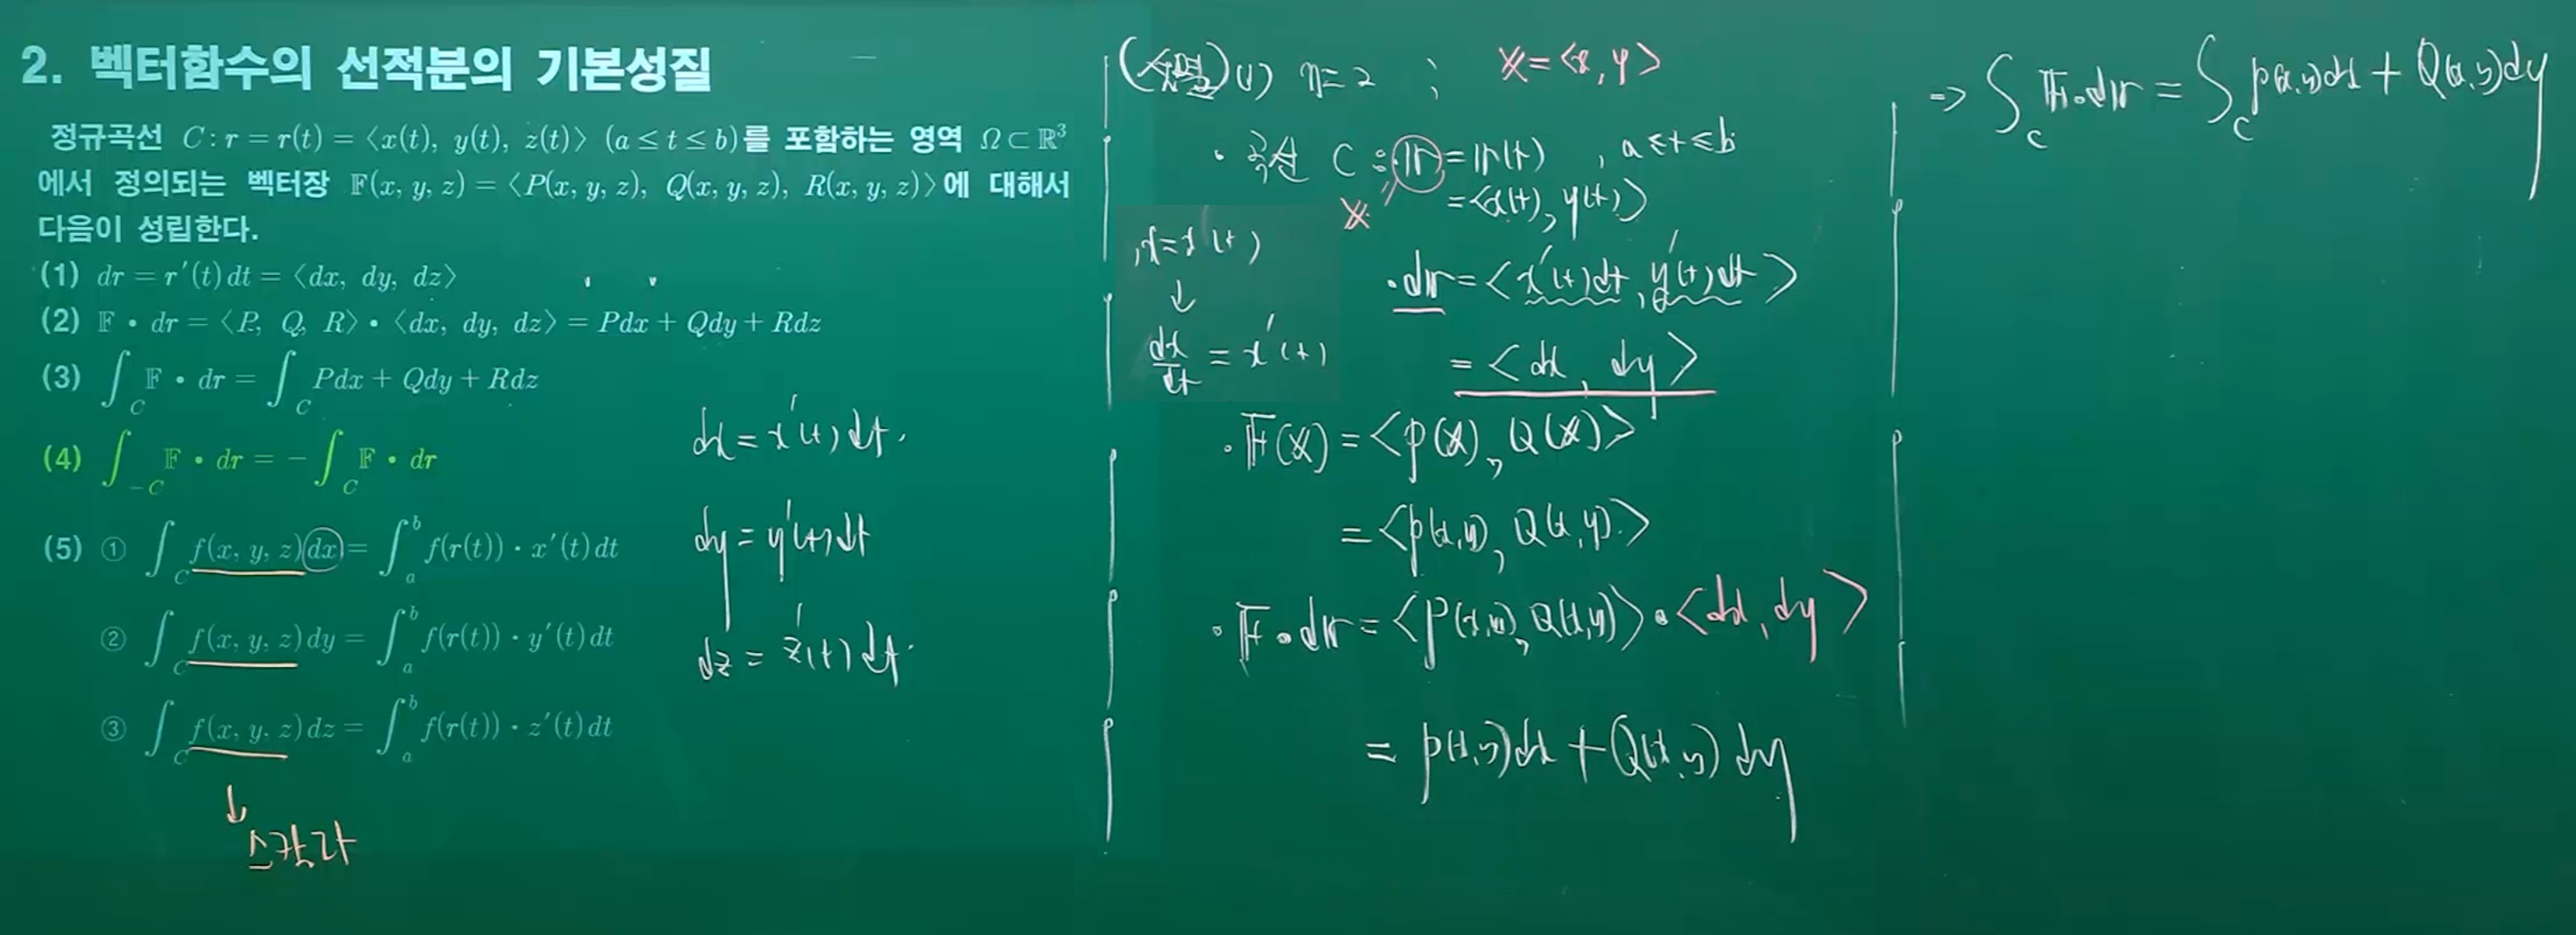 2. 벡터함수의 선적분의 기본성질
정규곡선 C : r = r(t) = ⟨x(t), y(t), z(t)⟩ (a ≤ t ≤ b)를 포함하는 영역 Ω ⊂ ℝ³
에서 정의되는 벡터장 𝔽(x, y, z) = ⟨P(x, y, z), Q(x, y, z), R(x, y, z)⟩에 대해서
다음이 성립한다.
(1) dr = r′(t) dt = ⟨dx, dy, dz⟩
(2) 𝔽 • dr = ⟨P, Q, R⟩ • ⟨dx, dy, dz⟩ = Pdx + Qdy + Rdz
(3) ∫_C 𝔽 • dr = ∫_C Pdx + Qdy + Rdz
(4) ∫_{-C} 𝔽 • dr = − ∫_C 𝔽 • dr
(5) ① ∫_C f(x, y, z)dx = ∫_a^b f(r(t)) · x′(t) dt
② ∫_C f(x, y, z) dy = ∫_a^b f(r(t)) · y′(t) dt
③ ∫_C f(x, y, z) dz = ∫_a^b f(r(t)) · z′(t) dt
↓
스칼라
dx = x′(t) dt.
dy = y′(t) dt
dz = z′(t) dt.
(설명) (1) n = 2 ; 𝕏 = <x, y>
· 곡선 C : 𝕣 = 𝕣(t) , a ≤ t ≤ b
𝕏
= <x(t), y(t)>
x = x(t)
↓
dx/dt = x′(t)
· d𝕣 = <x′(t)dt, y′(t)dt>
= <dx, dy>
· 𝔽(𝕏) = <P(𝕏), Q(𝕏)>
= <P(x,y), Q(x,y)>
· 𝔽 • d𝕣 = <P(x,y), Q(x,y)> • <dx, dy>
= P(x,y)dx + Q(x,y) dy
⇒ ∫_C 𝔽 • d𝕣 = ∫_C P(x,y)dx + Q(x,y)dy